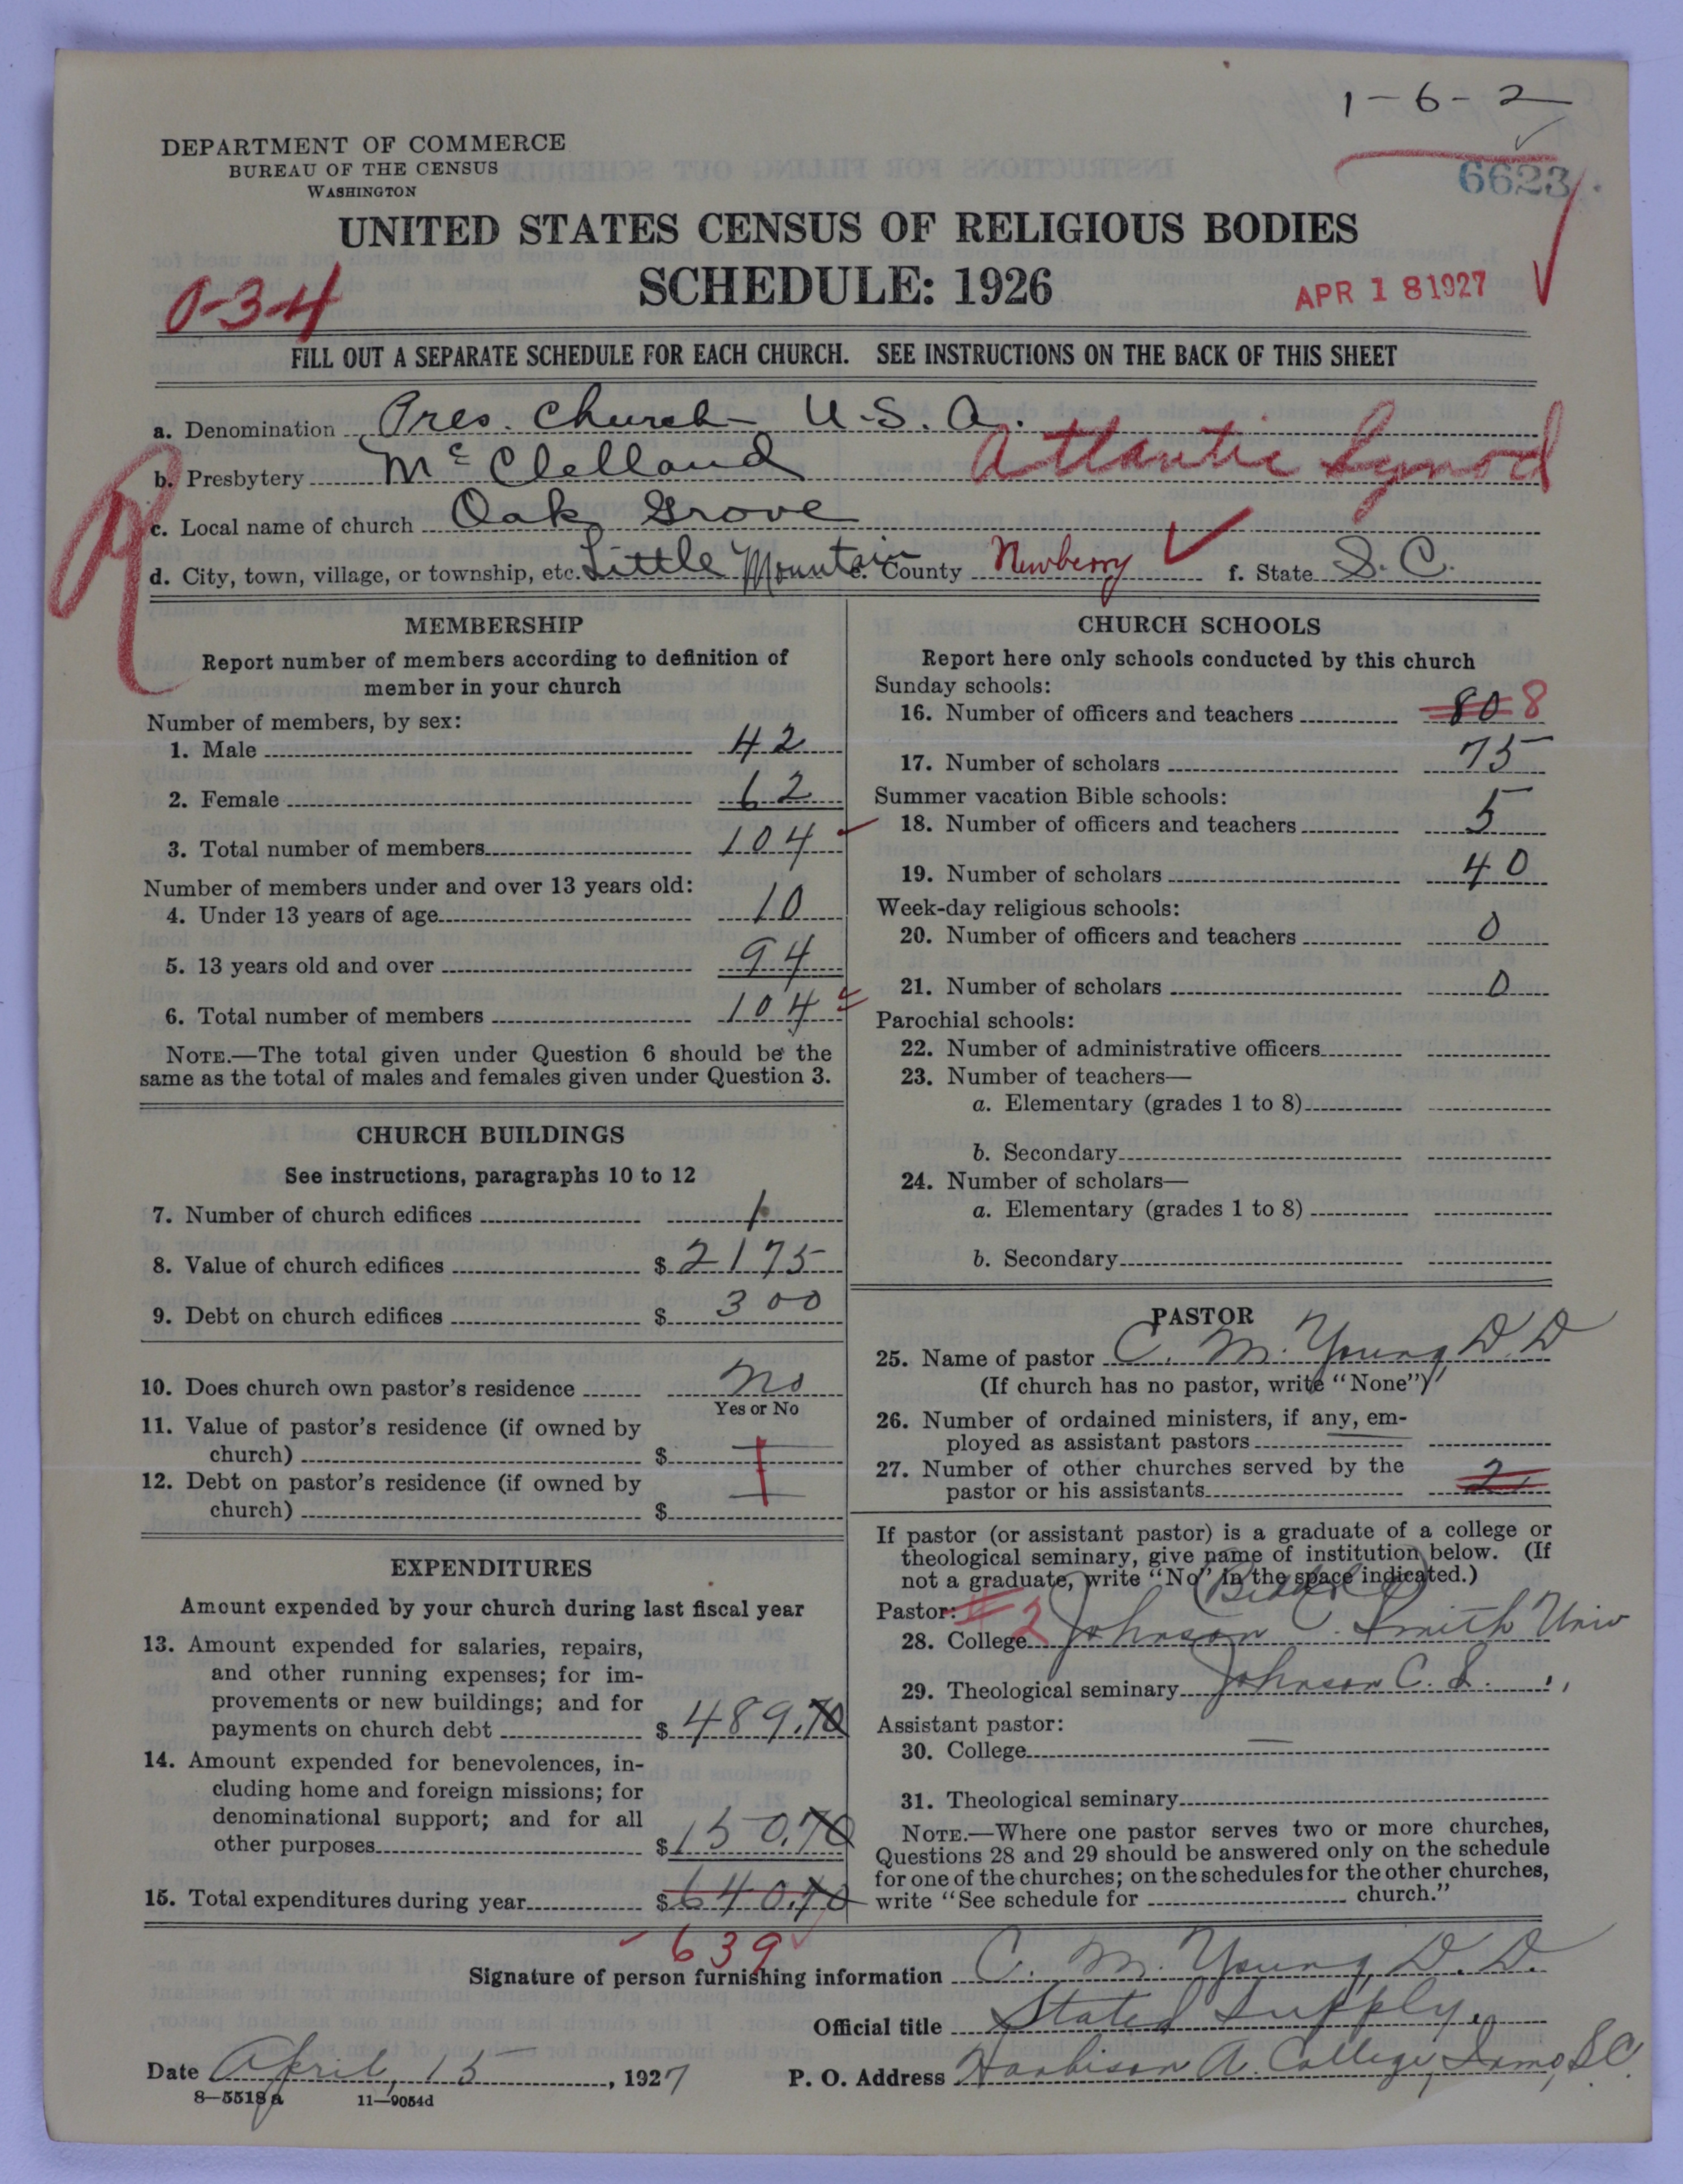 1-6-2
DEPARTMENT OF COMMERCE
BUREAU OF THE CENSUS
WASHINGTON
6623
UNITED STATES CENSUS OF RELIGIOUS BODIES
SCHEDULE: 1926
0-3-4
APR 18 1927
FILL OUT A SEPARATE SCHEDULE FOR EACH CHURCH. SEE INSTRUCTIONS ON THE BACK OF THIS SHEET
a. Denomination Pres. Church U.S.A.
b. Presbytery McClelland Atlantic Synod
R
c. Local name of church Oak Grove
d. City, town, village, or township, etc. Little Mountain e. County Newberry f. State S.C.
MEMBERSHIP
Report number of members according to definition of
member in your church
Number of members, by sex:
1. Male 42
2. Female 62
3. Total number of members 104
Number of members under and over 13 years old:
4. Under 13 years of age 10
5. 13 years old and over 94
6. Total number of members 104
NOTE.—The total given under Question 6 should be the
same as the total of males and females given under Question 3.
CHURCH BUILDINGS
See instructions, paragraphs 10 to 12
7. Number of church edifices 1
8. Value of church edifices $ 2175
9. Debt on church edifices $ 300
10. Does church own pastor's residence No
Yes or No
11. Value of pastor's residence (if owned by
church) $
12. Debt on pastor's residence (if owned by
church) $
EXPENDITURES
Amount expended by your church during last fiscal year
13. Amount expended for salaries, repairs,
and other running expenses; for im-
provements or new buildings; and for
payments on church debt $ 489.70
14. Amount expended for benevolences, in-
cluding home and foreign missions; for
denominational support; and for all
other purposes $ 150.70
15. Total expenditures during year $ 640.40
639
CHURCH SCHOOLS
Report here only schools conducted by this church
Sunday schools:
16. Number of officers and teachers 80 8
17. Number of scholars 75
Summer vacation Bible schools:
18. Number of officers and teachers 5
19. Number of scholars 40
Week-day religious schools:
20. Number of officers and teachers 0
21. Number of scholars 0
Parochial schools:
22. Number of administrative officers
23. Number of teachers—
a. Elementary (grades 1 to 8)
b. Secondary
24. Number of scholars—
a. Elementary (grades 1 to 8)
b. Secondary
PASTOR
25. Name of pastor C. M. Young, D.D
(If church has no pastor, write "None")
26. Number of ordained ministers, if any, em-
ployed as assistant pastors
27. Number of other churches served by the
pastor or his assistants 2
If pastor (or assistant pastor) is a graduate of a college or
theological seminary, give name of institution below. (If
not a graduate, write "No" in the space indicated.)
Pastor: 2 (Biddle)
28. College Johnson C. Smith Univ
29. Theological seminary Johnson C. S. "
Assistant pastor:
30. College —
31. Theological seminary
NOTE.—Where one pastor serves two or more churches,
Questions 28 and 29 should be answered only on the schedule
for one of the churches; on the schedules for the other churches,
write "See schedule for church."
Signature of person furnishing information C. M. Young, D.D.
Official title Stated Supply.
Date April, 15, 1927 P. O. Address Harbison A. College, Irmo, S.C.
8—5518a 11—9054d